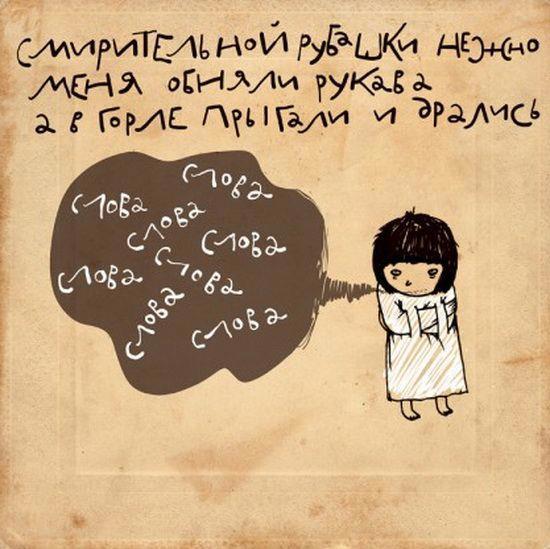 смирительной рубашки нежно
меня обняли рукава
а в горле прыгали и дрались
слова
слова
слова
слова
слова
слова
слова
слова